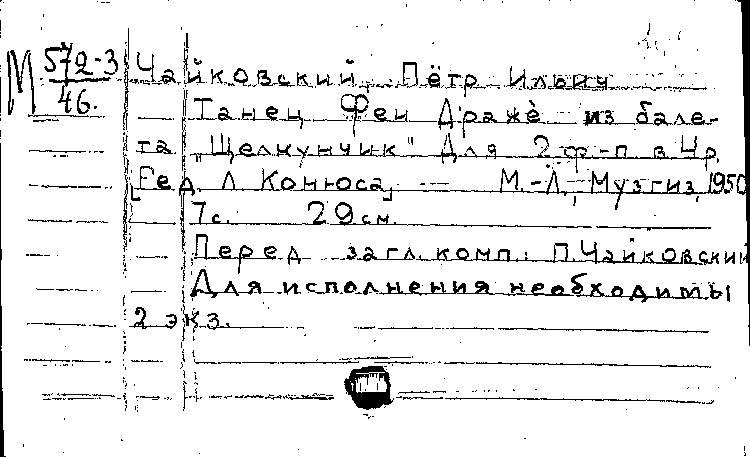 М 572-3
46.
Чайковский, Пётр Ильич
Танец Феи Драже из бале-
та "Щелкунчик" Для 2 ф-п в 4 р.
[Ред. Л. Конюса] — М.-Л., Музгиз, 1950
7 с. 29 см.
Перед загл. комп.: П. Чайковский
Для исполнения необходимы
2 экз.